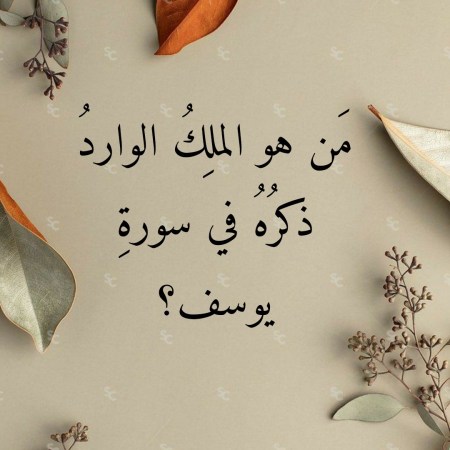 مَن هو الملِكُ الواردُ
ذكرُهُ في سورةِ
يوسف؟